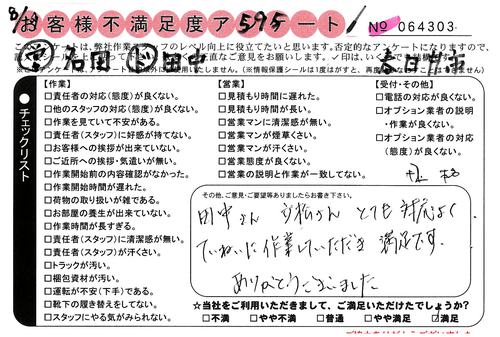 8/
お客様不満足度アンケート
595
No 064303
このアンケートは、弊社作業スタッフのレベル向上に役立てたいと思います。否定的なアンケートになりますので、
田中
春日井市
【作業】
□責任者の対応(態度)が良くない。
□他のスタッフの対応(態度)が良くない。
□作業を見ていて不安がある。
□責任者(スタッフ)に好感が持てない。
□お客様への挨拶が出来ていない。
□ご近所への挨拶・気遣いが無い。
□作業開始前の内容確認がなかった。
□作業開始時間が遅れた。
□荷物の取り扱いが雑である。
□お部屋の養生が出来ていない。
□作業時間が長すぎる。
□責任者(スタッフ)に清潔感が無い。
□責任者(スタッフ)が汗くさい。
□トラックが汚い。
□梱包資材が汚い。
□運転が不安(下手)である。
□靴下の履き替えをしてない。
□スタッフにやる気がみられない。
チェックリスト
【営業】
□見積もり時間に遅れた。
□見積もり時間が長い。
□営業マンに清潔感が無い。
□営業マンが煙草くさい。
□営業マンが汗くさい。
□営業態度が良くない。
□営業の説明と作業が一致してない。
【受付・その他】
□電話の対応が良くない。
□オプション業者の説明
・作業が良くない。
□オプション業者の対応
(態度)が良くない。
その他、ご意見・ご要望等ありましたらお書き下さい。
田中さん 立松さん とても対応よく
ていねいに作業していただき 満足です。
ありがとうございました
☆当社をご利用いただきまして、ご満足いただけたでしょうか?
□不満 □やや不満 □普通 □やや満足 ☑満足